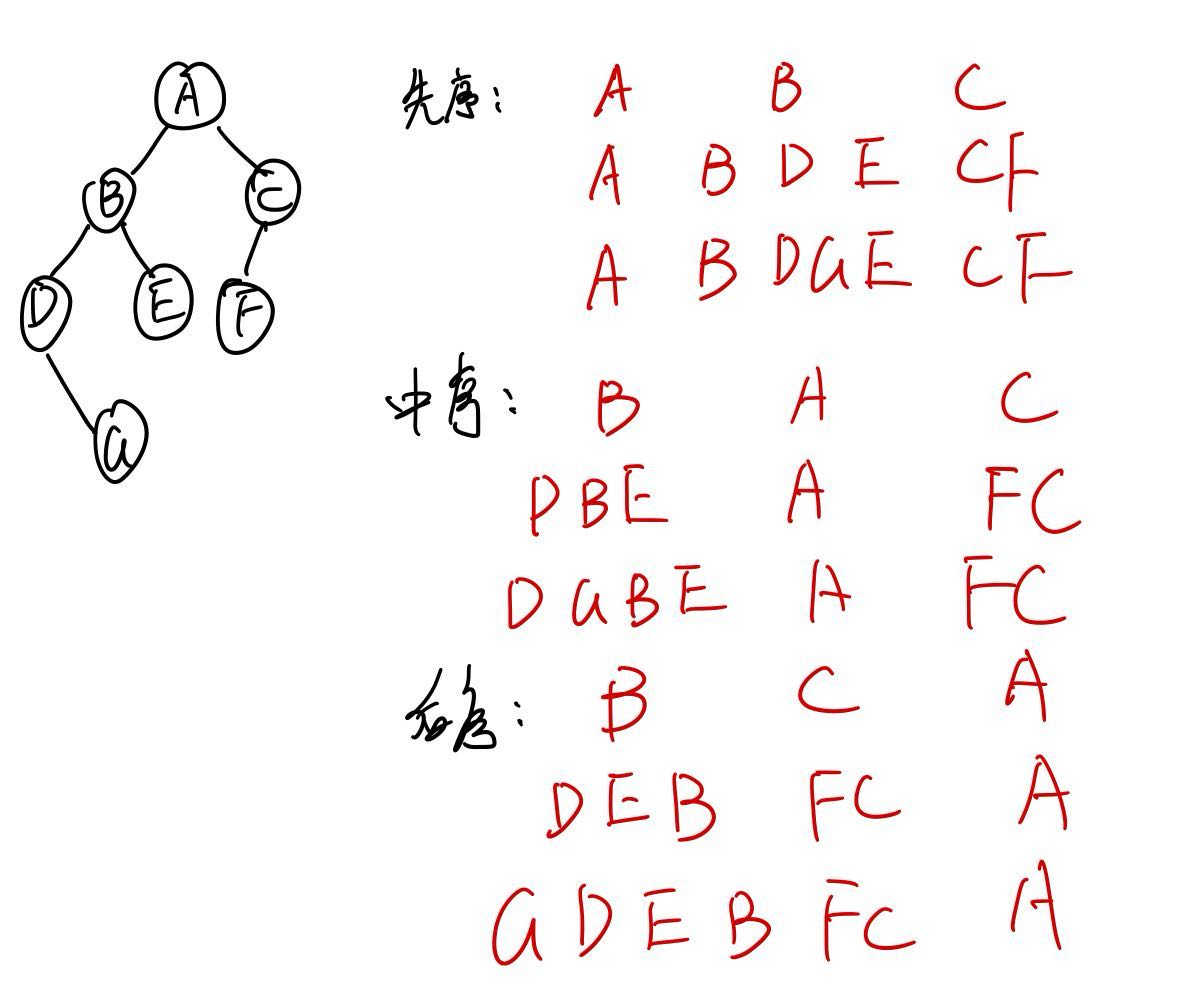 A
B
C
D
E
F
G
先序: A B C
A B D E C F
A B D G E C F
中序: B A C
D B E A F C
D G B E A F C
后序: B C A
D E B F C A
G D E B F C A